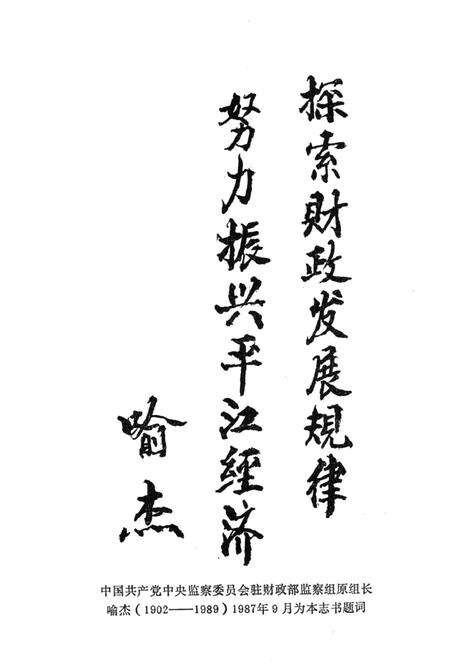 探索财政发展规律
努力振兴平江經济
喻杰
中国共产党中央监察委员会驻财政部监察组原组长
喻杰（1902——1989）1987年9月为本志书题词